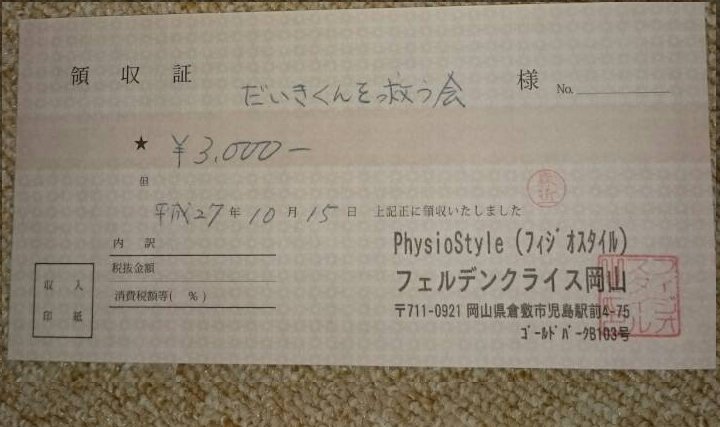 領収証 だいきくんを救う会 様 No.
★ ¥3,000-
但
平成27年10月15日 上記正に領収いたしました
内訳
税抜金額
消費税額等( %)
収入
印紙
PhysioStyle(フィジオスタイル)
フェルデンクライス岡山
〒711-0921 岡山県倉敷市児島駅前4-75
ゴールドパークB103号